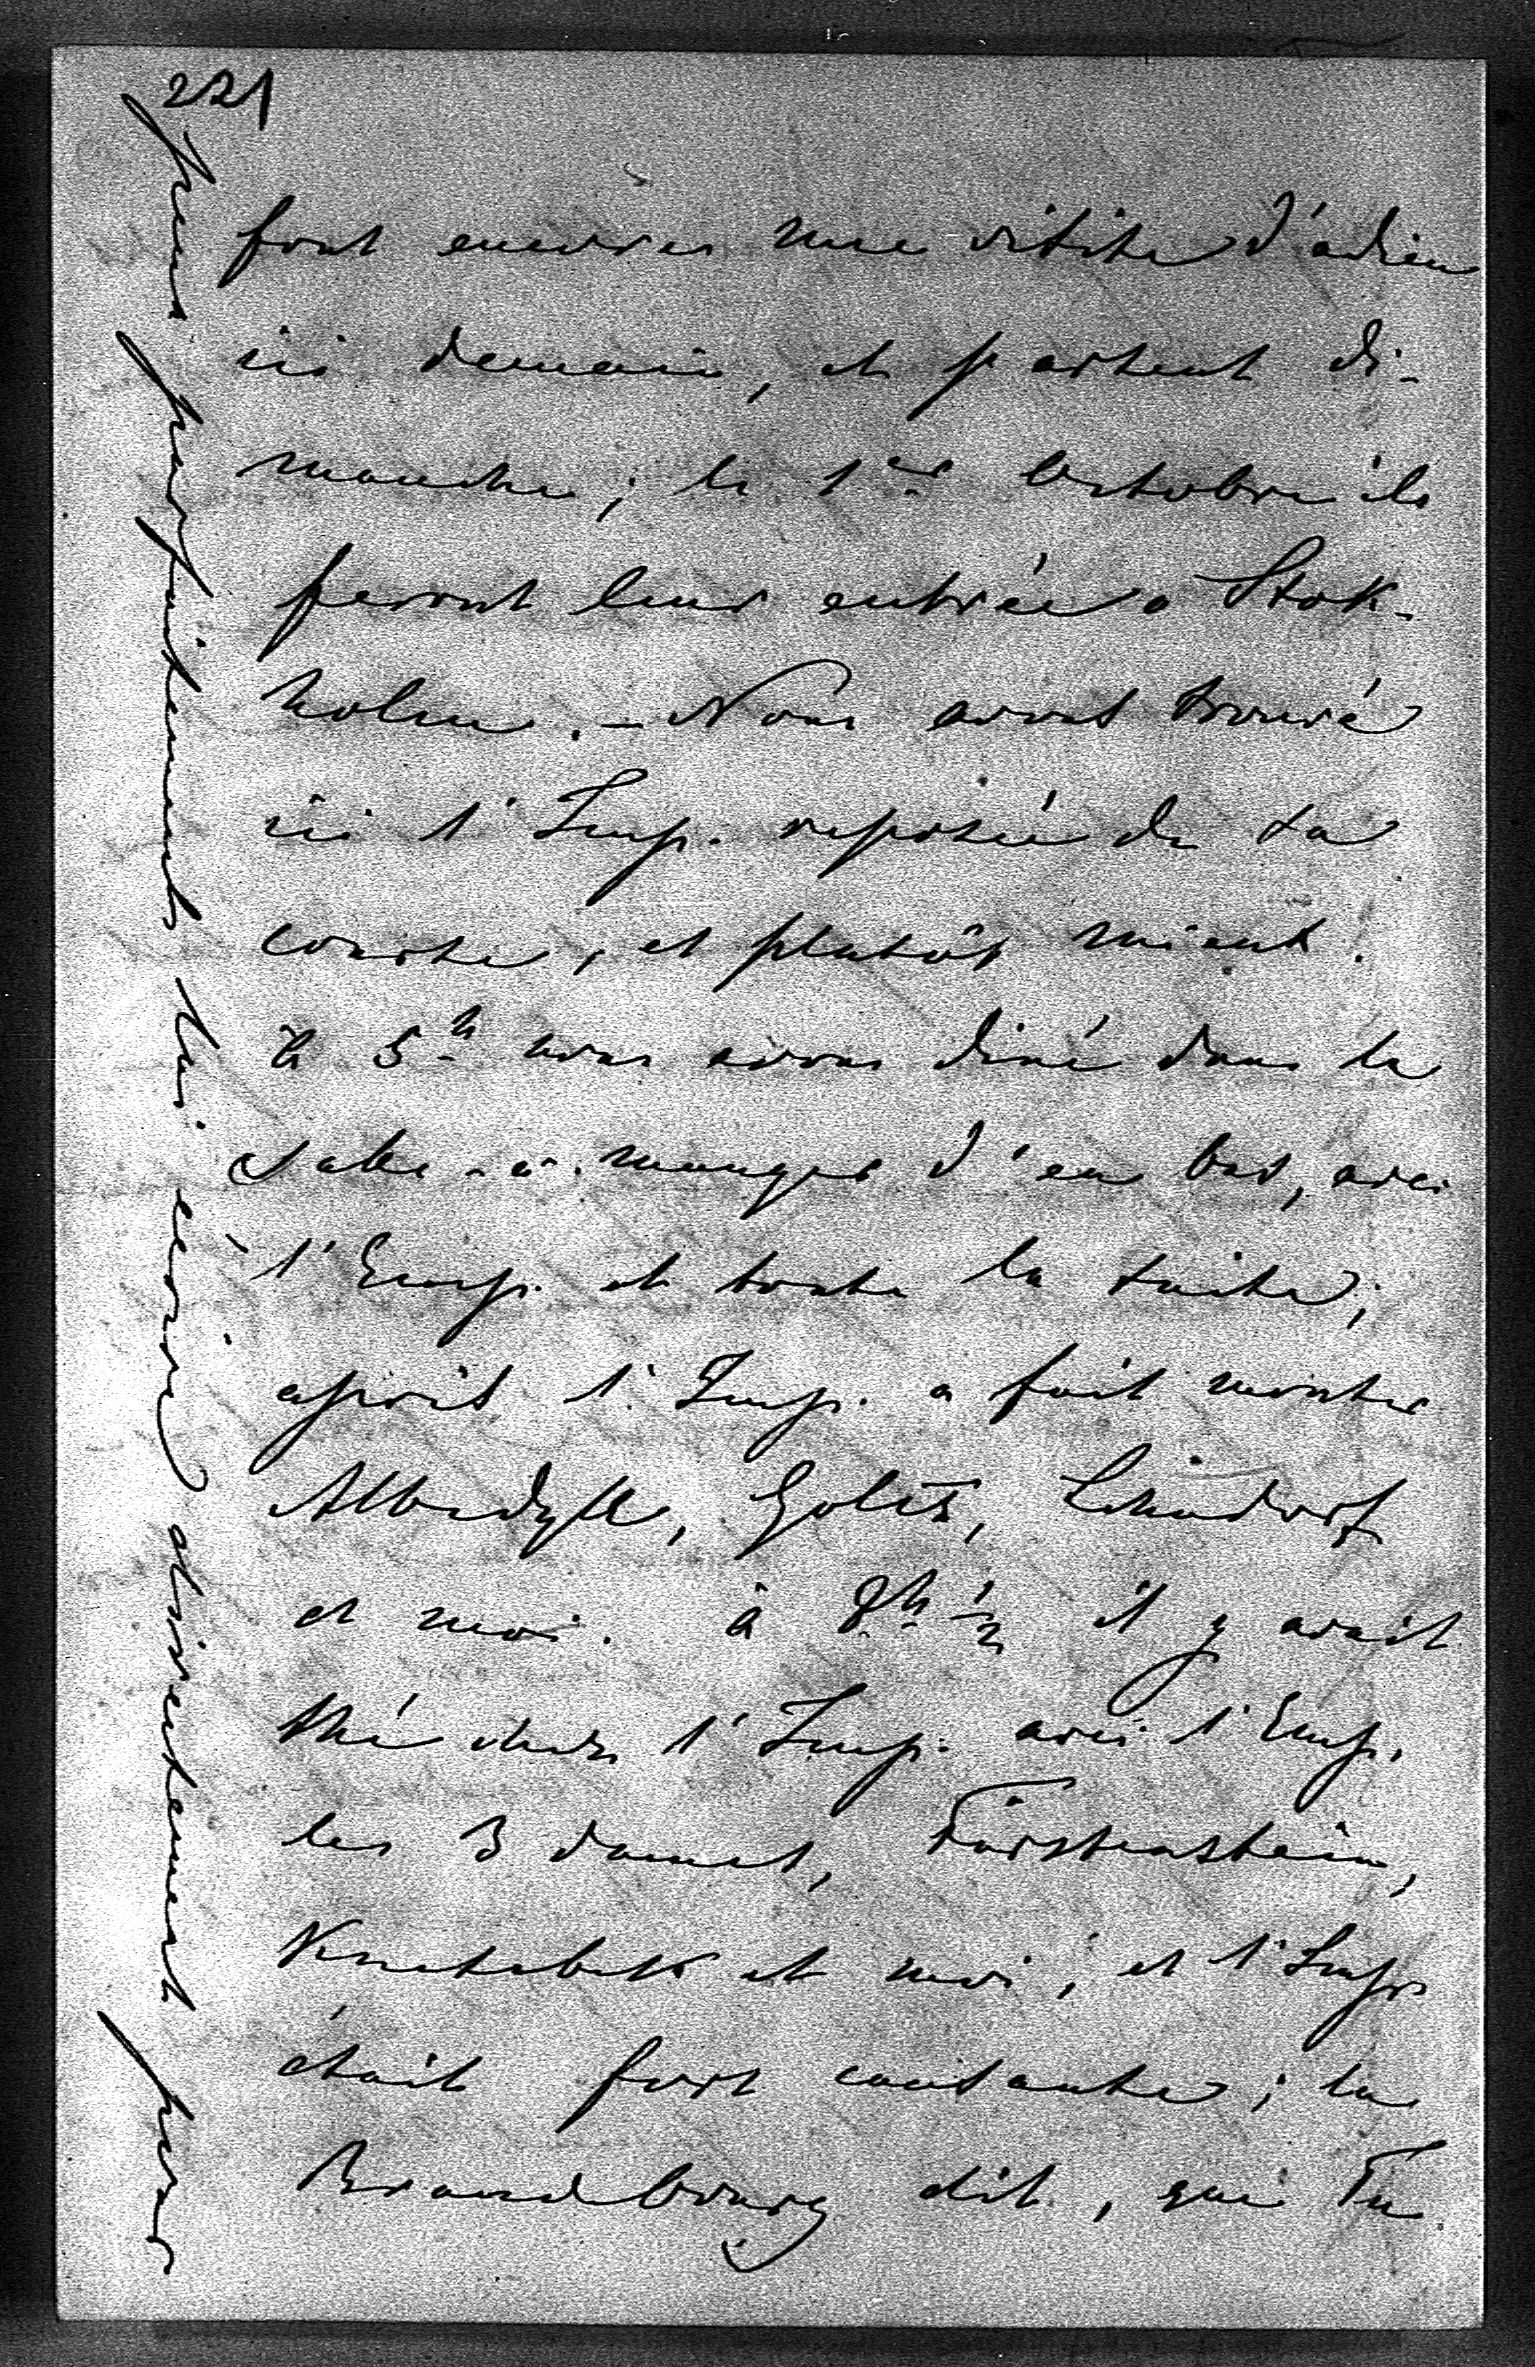 221
font encore une visite d'adieu
ici demain, et partent di-
manche; le 1er Octobre ils
feront leur entrée a Stok-
holm. - Nous avons trouvé
ici l'Imp. reposée de sa
course, et plutôt mieux.
à 5h nous avons diné dans la
salle-à-manger d'en bas, avec
l'Emp. et toute la suite;
après l'Imp. a fait monter
Albedyll, Goltz, Lehndorf
et moi. à 8h 1/2 il y avait
thé chez l'Imp. avec l'Emp.
les 3 dames, Fürstenstein,
Knesebeck et moi; et l'Imp.
était fort causante; la
Brandebourg dit, que Tu
peux parfaitement lui écrire directement pour